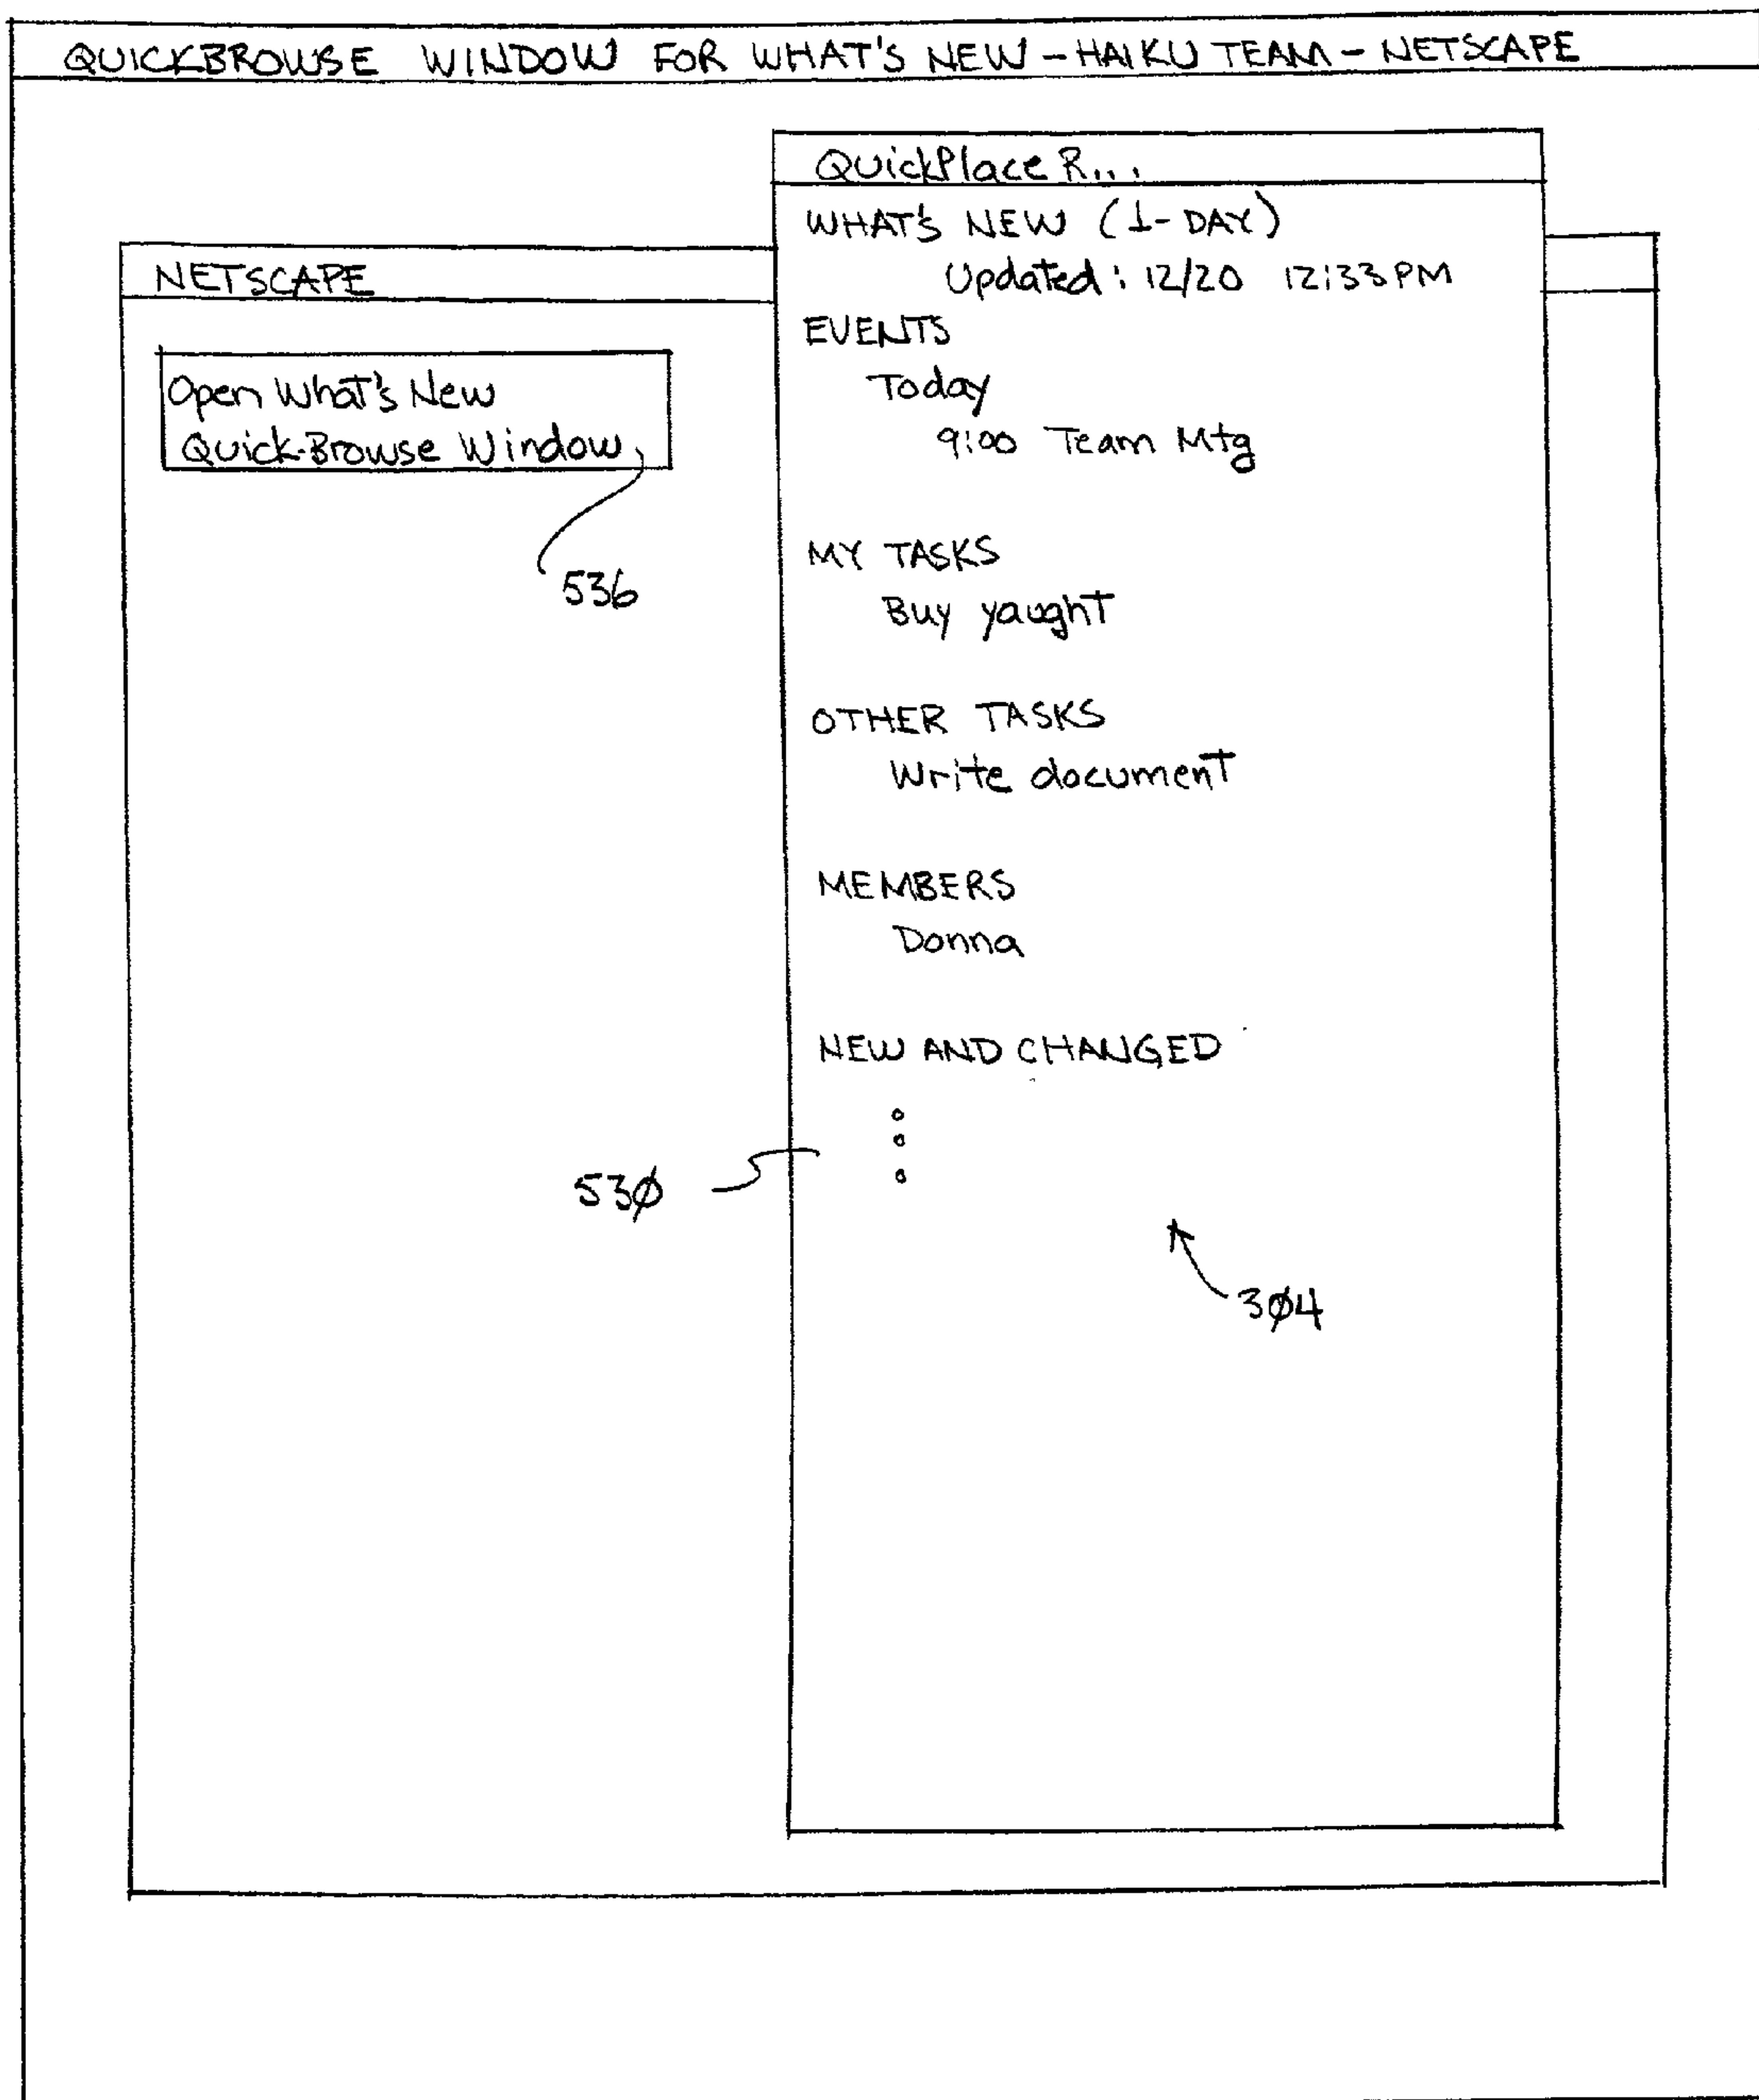 QUICKBROWSE WINDOW FOR WHAT'S NEW - HAIKU TEAM - NETSCAPE
NETSCAPE
Open What's New
Quick-Browse Window
536
QuickPlace R...
WHAT'S NEW (1-DAY)
Updated: 12/20 12:33 PM
EVENTS
Today
9:00 Team Mtg
MY TASKS
Buy yaught
OTHER TASKS
Write document
MEMBERS
Donna
NEW AND CHANGED
53Ø
3Ø4